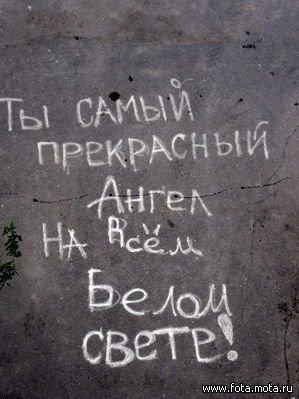 Ты САМЫЙ
ПРЕКРАСНЫЙ
Ангел
НА Всём
Белом
СВЕТЕ!
www.fota.mota.ru